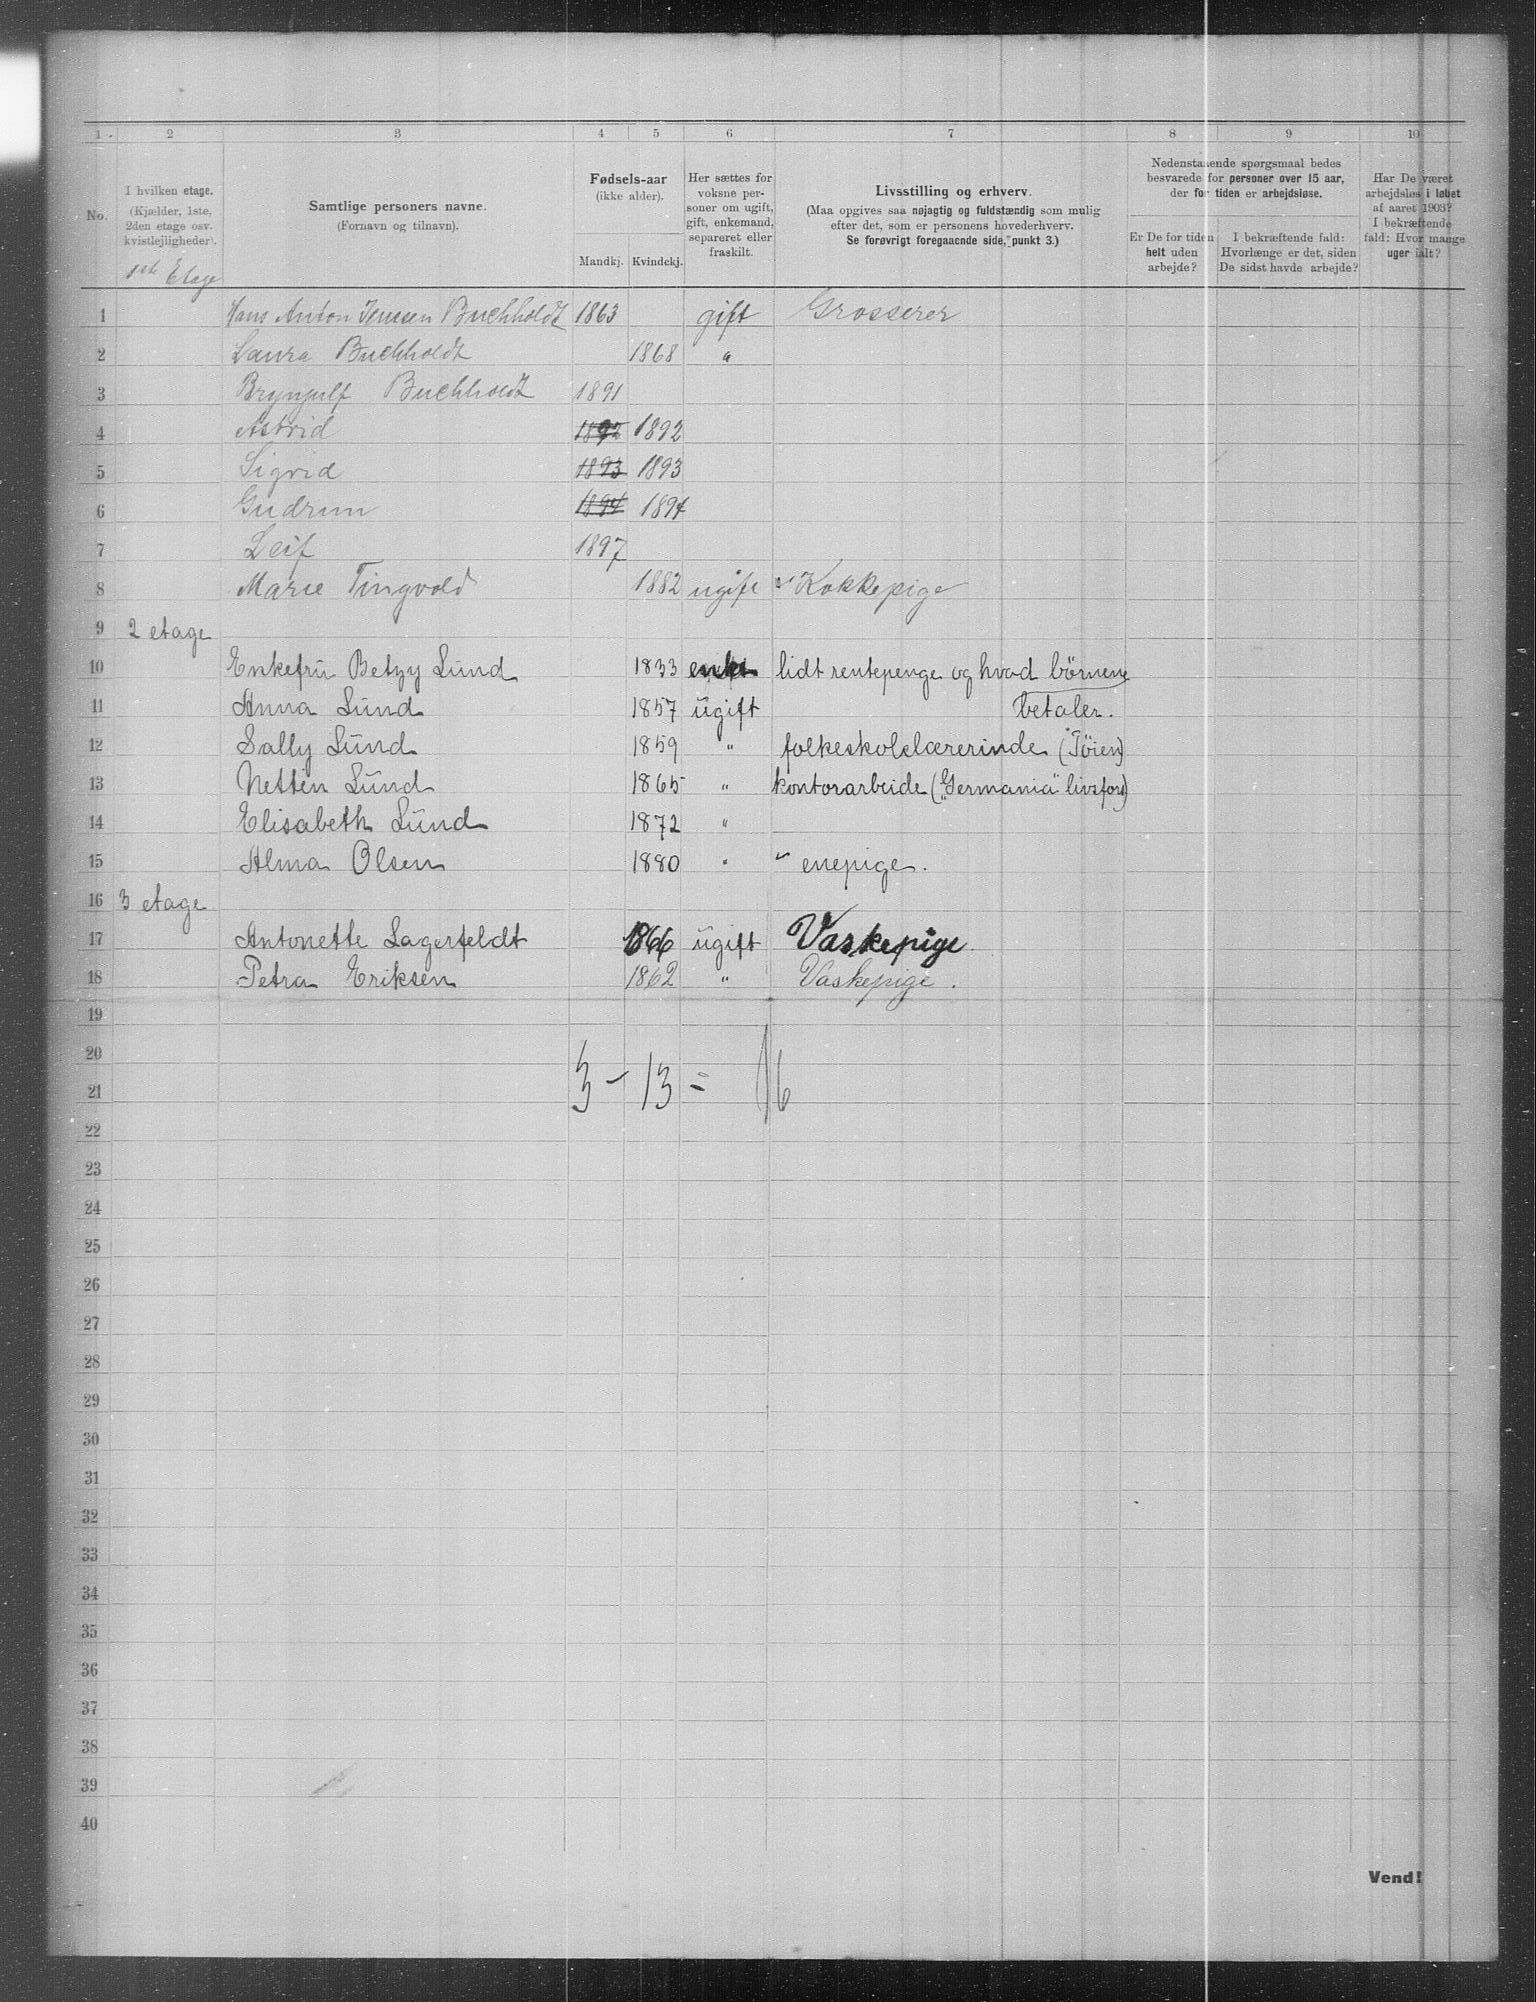 1 2 3 4 5 6 7 8 9 10
No.
I hvilken etage.
(Kjælder, 1ste,
2den etage osv.
kvistlejligheder).
1ste Etage
Samtlige personers navne.
(Fornavn og tilnavn).
Fødsels-aar
(ikke alder).
Mandkj. Kvindekj.
Her sættes for
voksne per-
soner om ugift,
gift, enkemand,
separeret eller
fraskilt.
Livsstilling og erhverv.
(Maa opgives saa nøjagtig og fuldstændig som mulig
efter det, som er personens hovederhverv.
Se forøvrigt foregaaende side, punkt 3.)
Nedenstaaende spørgsmaal bedes
besvarede for personer over 15 aar,
der for tiden er arbejdsløse.
Er De for tiden
helt uden
arbejde?
I bekræftende fald:
Hvorlænge er det, siden
De sidst havde arbejde?
Har De været
arbejdsløs i løbet
af aaret 1903?
I bekræftende
fald: Hvor mange
uger ialt?
1 Hans Anton Jenssen Buchholdt 1863 gift Grosserer
2 Laura Buchholdt 1868 "
3 Brynjulf Buchholdt 1891
4 Astrid 1892 1892
5 Sigrid 1893 1893
6 Gudrun 1894 1894
7 Leif 1897
8 Marie Tingvold 1882 ugift Kokkepige
9 2 etage
10 Enkefru Betzy Lund 1833 enke lidt rentepenge og hvad børnene
11 Anna Lund 1857 ugift betaler.
12 Sally Lund 1859 " folkeskolelærerinde (Tøien)
13 Netten Lund 1865 " kontorarbeide ("Germania" livsfors)
14 Elisabeth Lund 1872 "
15 Alma Olsen 1880 " enepige.
16 3 etage
17 Antonette Lagerfeldt 1866 ugift Vaskepige
18 Petra Eriksen 1862 " Vaskepige.
19
20
21 3 - 13 = 16
22
23
24
25
26
27
28
29
30
31
32
33
34
35
36
37
38
39
40
Vend!